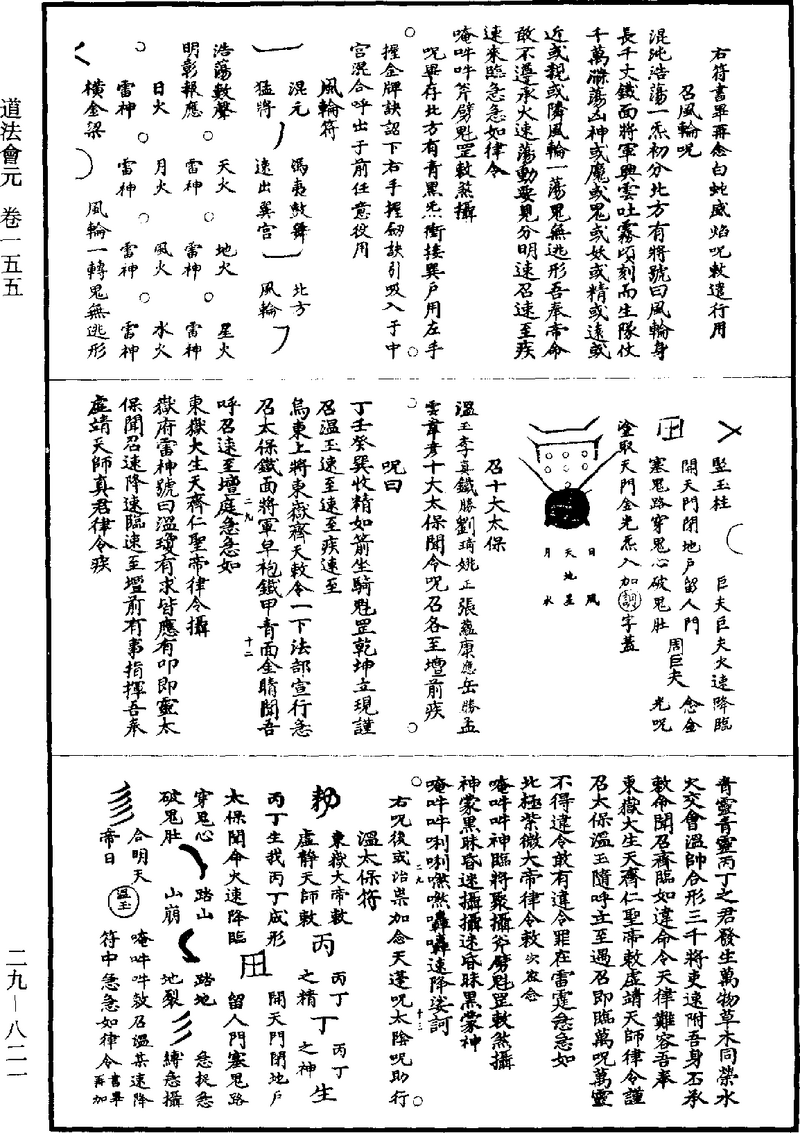 道法會元　卷一五五
右符書畢再念白蛇威焰呪敕遣行用
召風輪呪
混沌浩蕩一炁初分北方有將號曰風輪身
長千丈鐵面將軍興雲吐霧頃刻而生隊仗
千萬滌蕩凶神或魔或鬼或妖或精或遠或
近或親或隣風輪一蕩鬼無逃形吾奉帝命
敢不遵承火速蕩動要見分明速召速至疾
速來臨急急如律令
唵吽吽斧劈魁罡敕煞攝
呪畢存北方有青黑炁衝接巽戶用左手
握金牌訣認下右手握劒訣引吸入于中
宮混合呼出于前任意役用
風輪符
混元　馮夷鼓舞　北方
猛將　速出巽宮　風輪
浩蕩數聲　天火　地火　星火
明彰報應　雷神　雷神　雷神
日火　月火　風火　水火
雷神　雷神　雷神　雷神
橫金梁　風輪一轉鬼無逃形
竪玉柱　巨夫巨夫火速降臨
開天門閉地戶留人門　念金
塞鬼路穿鬼心破鬼肚　周巨夫　光呪
塗取天門金光炁入加字蓋
日　風
天　地　星
月　水
召十大太保
溫玉李真鐵勝劉琦姚正張蘊康應岳勝孟
雲韋彥十大太保聞令呪召各至壇前疾
呪曰
丁壬癸巽收精如箭坐騎魁罡乾坤立現謹
召溫玉速至速至疾速至
烏東上將東嶽齊天敕令一下法部宣行急
召太保鐵面將軍皁袍鐵甲青面金睛聞吾
呼召速至壇庭急急如
東嶽大生天齊仁聖帝律令攝
嶽府雷神號曰溫瓊有求皆應有叩即靈太
保聞召速降速臨速至壇前有事指揮吾奉
虛靖天師真君律令疾
青靈青靈丙丁之君發生萬物草木同榮水
火交會溫帥合形三千將吏速附吾身丕承
敕命聞召齊臨如違命令天律難容吾奉
東嶽大生天齊仁聖帝敕虛靖天師律令謹
召太保溫玉隨呼立至遇召即臨萬呪萬靈
不得違令敢有違令罪在雷霆急急如
北極紫微大帝律令敕次密念
唵吽吽神臨將聚攝斧劈魁罡敕煞攝
神蒙黑眛昏迷攝攝速昏眛黑蒙神
唵吽吽唎唎嘫嘫轟轟速降娑訶
右呪後或治祟加念天蓬呪太陰呪助行
溫太保符
東嶽大帝敕　丙丁　丙丁
虛靜天師敕　丙　之精　丁　之神　生
丙丁生我丙丁成形　開天門閉地戶
太保聞命火速降臨　留人門塞鬼路
穿鬼心　踏山　踏地　急捉急
破鬼肚　山崩　地裂　縛急攝
合明天　唵吽吽敕召溫某速降
帝日　溫玉　符中急急如律令書畢再加
二九－八二一